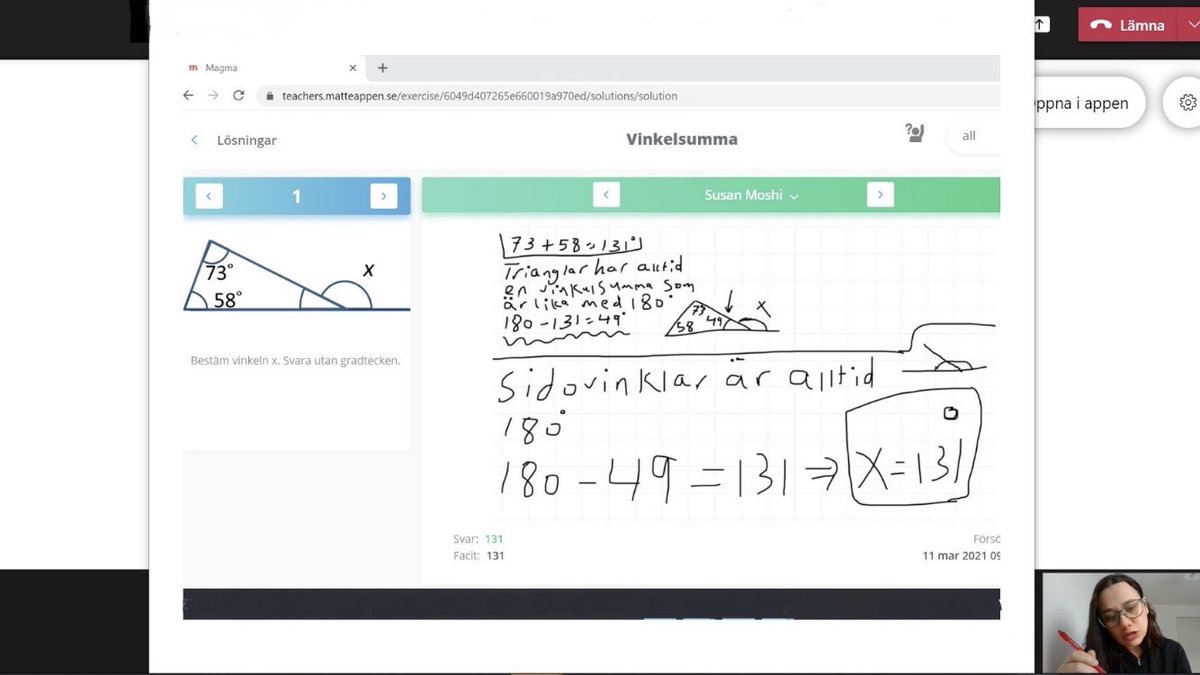 Lämna
Magma
teachers.matteappen.se/exercise/6049d407265e660019a970ed/solutions/solution
ppna i appen
Lösningar
Vinkelsumma
all
1
Susan Moshi
73°
58°
x
Bestäm vinkeln x. Svara utan gradtecken.
73+58=131°
Trianglar har alltid
en vinkelsumma som
är lika med 180°
180-131=49°
73
58 49
x
Sidovinklar är alltid
180°
180-49=131 ⇒ x=131°
Svar: 131
Facit: 131
Försö
11 mar 2021 09